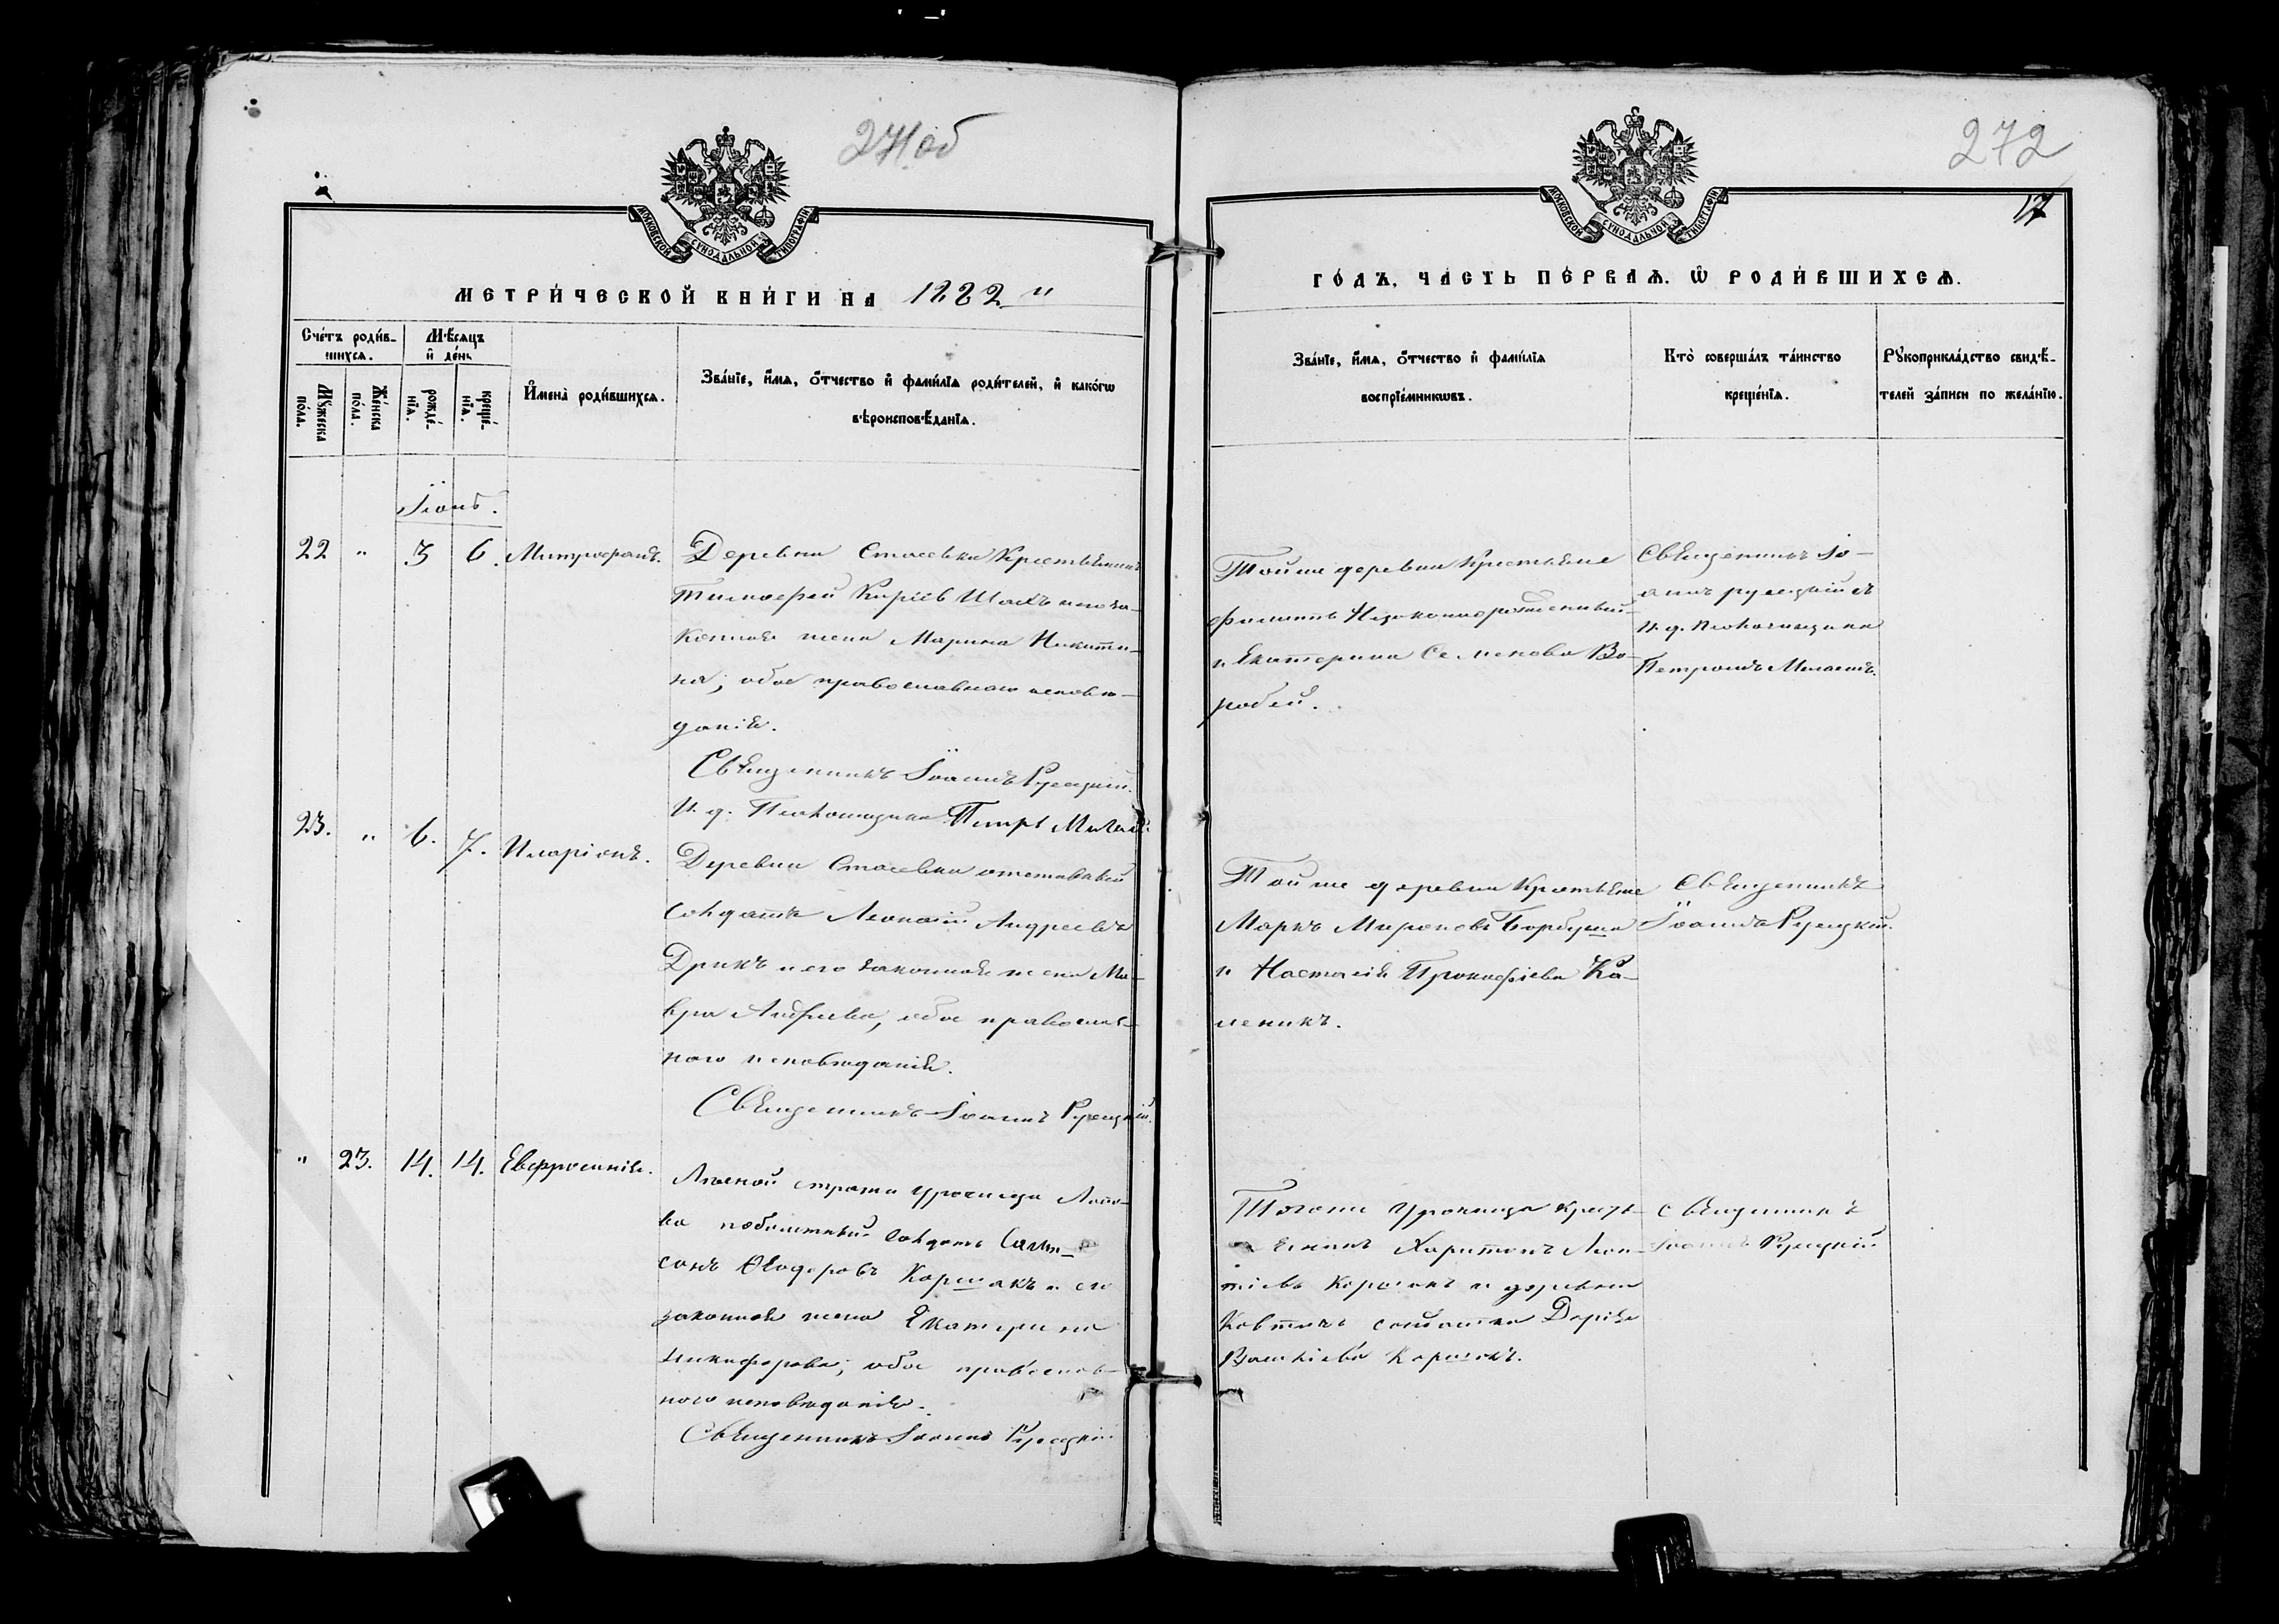 271об
МОСКОВСКОЙ СУНОДАЛЬНОЙ ТИПОГРАФІИ
МЕТРИ́ЧЕСКОЙ КНИ́ГИ НА 1882 "
Сче́тъ роди́в-
шихсѧ.
Мѣ́сѧцъ
и҆ де́нь
Мꙋ́жеска
по́ла.
Же́нска
по́ла.
рожде́-
нїѧ.
креще́-
нїѧ.
И҆мена̀ роди́вшихсѧ.
Зва́нїе, и҆́мѧ, ѻ҆́тчество и҆ фамилїѧ роди́телей, и҆ како́гѡ
вѣроисповѣ́данїѧ.
Іюнь.
22 " 3 6. Митрофанъ.
Деревни Стасевки Крестьянинъ
Тимофей Киріевъ Шахъ и его за-
конная жена Марина Никити-
на, обое православнаго исповѣ-
данія.
Священникъ Іоаннъ Ружицкій.
И. д. Псаломщика Петръ
23. " 6. 7. Иларіонъ.
Деревни Стасевки отставный
Солдатъ Леонтій Андреевъ
Дрикъ и его законная жена Ма-
вра Андреева, обое православ-
наго исповѣданія.
Священникъ Іоаннъ Ружицкій.
" 23. 14. 14. Евфросинія.
Лѣсной стражи урочища
солдатъ Сам-
сонъ Ѳеодоровъ Коршакъ и его
законная жена Екатерина
Никифорова, обое православ-
наго исповѣданія.
Священникъ Іоаннъ Ружицкій
272
17
МОСКОВСКОЙ СУНОДАЛЬНОЙ ТИПОГРАФІИ
ГО́ДЪ, ЧА́СТЬ ПЕ́РВАѦ. Ѡ҆ РОДИ́ВШИХСѦ.
Зва́нїе, и҆́мѧ, ѻ҆́тчество и҆ фамилїѧ
воспрїе́мникѡвъ.
Кто̀ соверша́лъ та́инство
креще́нїѧ.
Рꙋкоприкла́дство свидѣ́-
телей за́писи по жела́нїю.
Той же деревни Крестьяне
Филиппъ Незаконнорожденный
и Екатерина Семенова Во-
робей.
Священникъ Іо-
аннъ Ружицкій съ
и. д. Псаломщика
Петромъ
Той же деревни Крестьяне
Маркъ Мироновъ Борбуша
и Настасія Прокофіева Ка-
леникъ.
Священникъ
Іоаннъ Ружицкій.
Того же Урочища кресть-
янинъ Харитонъ Леон-
тіевъ Коршакъ и деревни
Ковтичъ солдатка Дарія
Василіева Коршакъ.
Священникъ
Іоаннъ Ружицкій